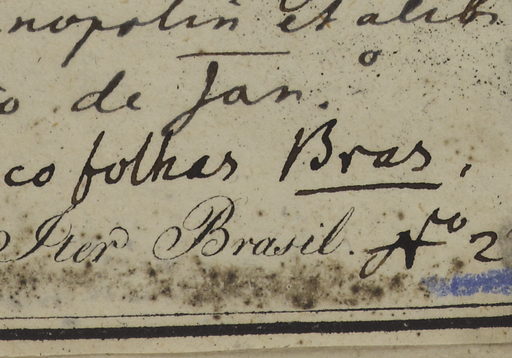 nopolin et alibi
o de Jan.º
co folhas Bras.
Iter Brasil. Nº 2